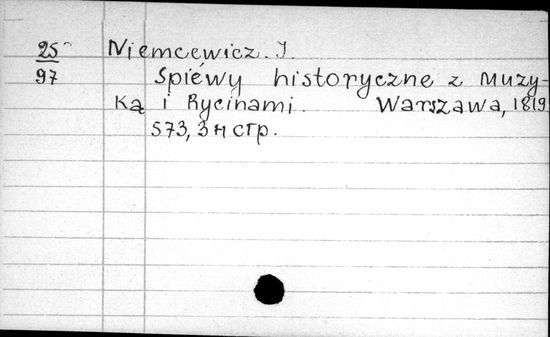 25 Niemcewicz. J.
97 Spiéwy historyczne z muzy-
ką i Rycinami. Warszawa, 1819.
573, 3 н стр.